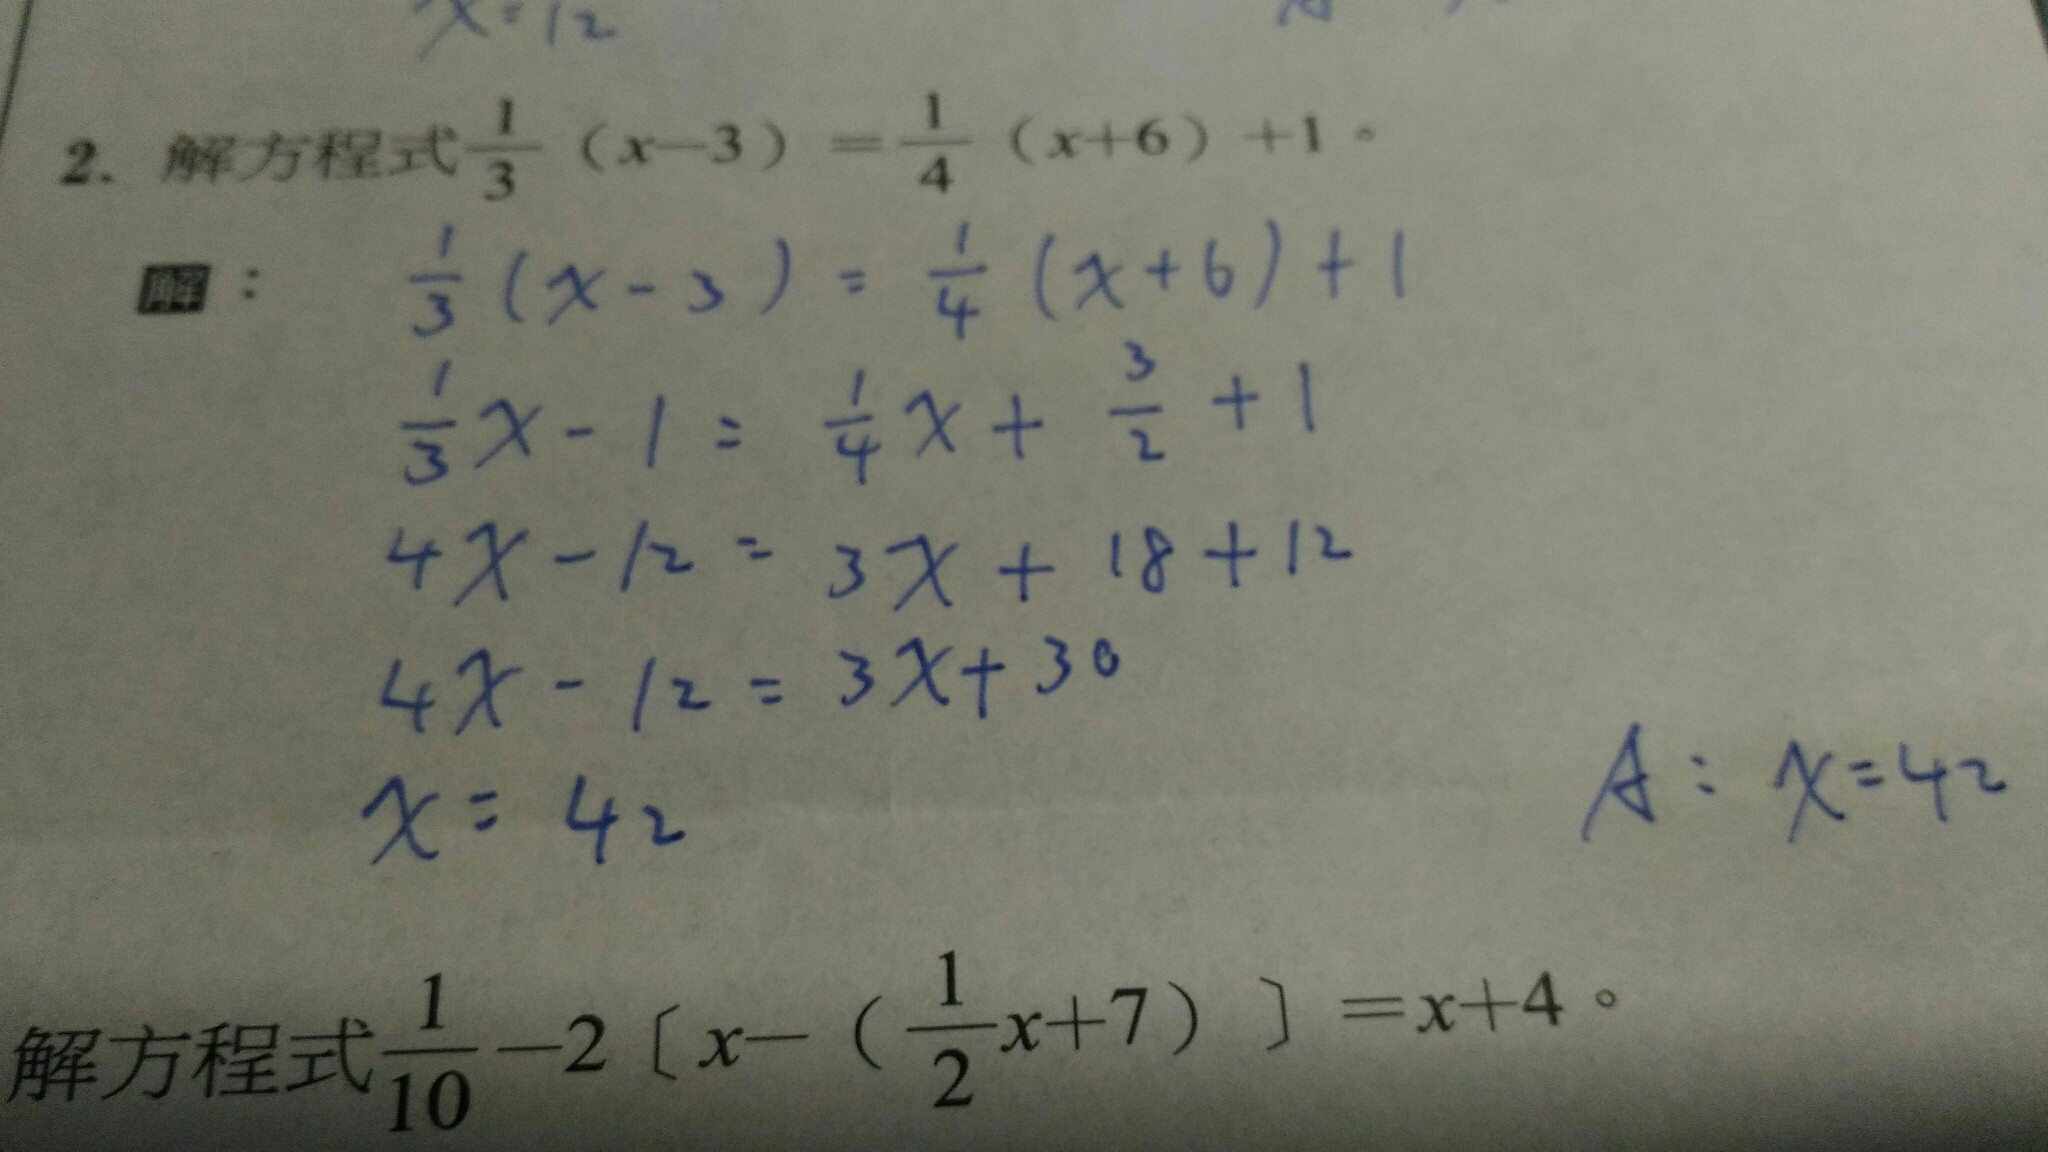 x=12
2. 解方程式 1/3 (x-3) = 1/4 (x+6) +1。
解: 1/3 (x-3) = 1/4 (x+6) +1
1/3 x - 1 = 1/4 x + 3/2 + 1
4x - 12 = 3x + 18 + 12
4x - 12 = 3x + 30
x = 42
A: x=42
解方程式 1/10 -2〔x-(1/2 x+7)〕=x+4。